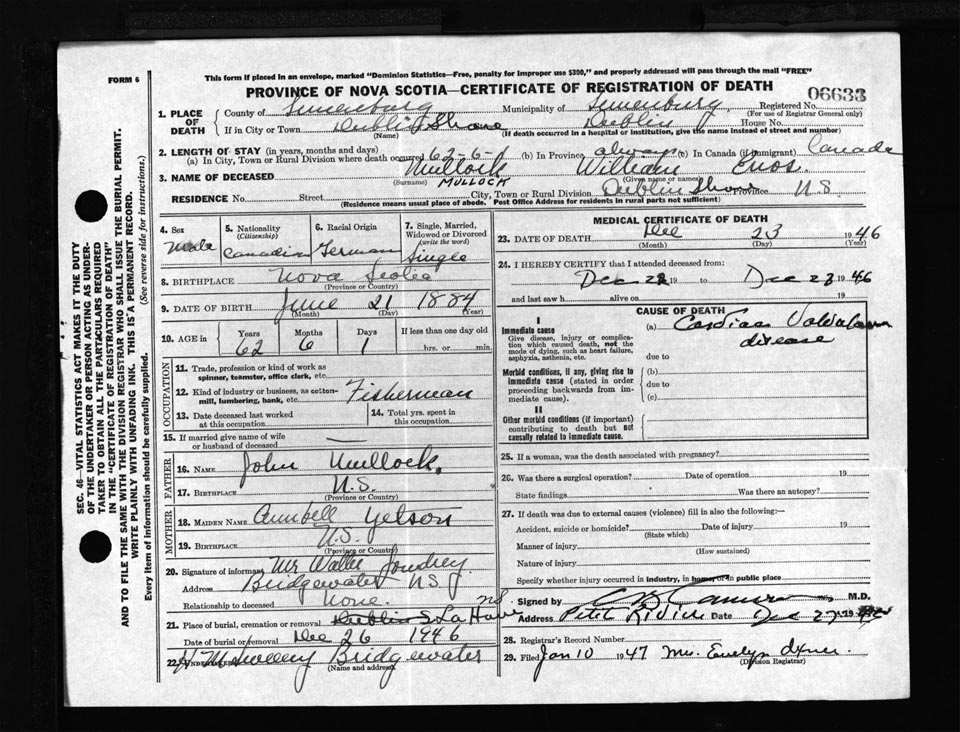 FORM 6
This form if placed in an envelope, marked "Dominion Statistics—Free, penalty for improper use $300," and properly addressed will pass through the mail "FREE"
PROVINCE OF NOVA SCOTIA—CERTIFICATE OF REGISTRATION OF DEATH
06633
1. PLACE OF DEATH County of Lunenburg Municipality of Lunenburg Registered No.
(For use of Registrar General only)
If in City or Town Dublin Shore Dublin House No.
(Name) (If death occurred in a hospital or institution, give the name instead of street and number)
2. LENGTH OF STAY (in years, months and days)
(a) In City, Town or Rural Division where death occurred 62-6-1 (b) In Province always (c) In Canada (if immigrant) Canada
3. NAME OF DECEASED Mullock William Enos.
(Surname) MULLOCK (Given name or names)
RESIDENCE No. Street City, Town or Rural Division Dublin Shore Province N S
(Residence means usual place of abode. Post Office Address for residents in rural parts not sufficient)
4. Sex Male
5. Nationality (Citizenship) Canadian
6. Racial Origin German
7. Single, Married, Widowed or Divorced (write the word) Single
8. BIRTHPLACE Nova Scotia
(Province or Country)
9. DATE OF BIRTH June 21 1884
(Month) (Day) (Year)
10. AGE in Years Months Days If less than one day old
62 6 1 hrs. or min.
OCCUPATION
11. Trade, profession or kind of work as spinner, teamster, office clerk, etc.
12. Kind of industry or business, as cotton-mill, lumbering, bank, etc. Fisherman
13. Date deceased last worked at this occupation
14. Total yrs. spent in this occupation
15. If married give name of wife or husband of deceased —
FATHER
16. NAME John Mullock.
17. BIRTHPLACE N.S.
(Province or Country)
MOTHER
18. MAIDEN NAME
19. BIRTHPLACE N.S.
(Province or Country)
20. Signature of informant Mr
Address Bridgewater N S
Relationship to deceased None.
21. Place of burial, cremation or removal Dublin S La Have N.S.
Date of burial or removal Dec 26 1946
22. UNDERTAKER Sweeny Bridgewater
(Name and address)
MEDICAL CERTIFICATE OF DEATH
23. DATE OF DEATH Dec 23 1946
(Month) (Day) (Year)
24. I HEREBY CERTIFY that I attended deceased from:
Dec 19 to Dec 23 1946
and last saw h alive on 19
CAUSE OF DEATH
I
Immediate cause
Give disease, injury or complication which caused death, not the mode of dying, such as heart failure, asphyxia, asthenia, etc.
(a) Cardiac Valvular disease
due to
Morbid conditions, if any, giving rise to immediate cause (stated in order proceeding backwards from immediate cause).
(b)
due to
(c)
II
Other morbid conditions (if important) contributing to death but not causally related to immediate cause.
25. If a woman, was the death associated with pregnancy?
26. Was there a surgical operation? Date of operation 19
State findings Was there an autopsy?
27. If death was due to external causes (violence) fill in also the following:—
Accident, suicide or homicide? Date of injury 19
(State which)
Manner of injury
(How sustained)
Nature of injury
Specify whether injury occurred in industry, in home, or in public place
Signed by M.D.
Address Petite Riviere Date Dec 27 19
28. Registrar's Record Number
29. Filed Jan 10 1947 Mrs. Evelyn
(Division Registrar)
SEC. 46—VITAL STATISTICS ACT MAKES IT THE DUTY
OF THE UNDERTAKER OR PERSON ACTING AS UNDER-
TAKER TO OBTAIN ALL THE PARTICULARS REQUIRED
IN THE "CERTIFICATE OF REGISTRATION OF DEATH"
AND TO FILE THE SAME WITH THE DIVISION REGISTRAR WHO SHALL ISSUE THE BURIAL PERMIT.
WRITE PLAINLY WITH UNFADING INK. THIS IS A PERMANENT RECORD.
Every item of information should be carefully supplied. (See reverse side for instructions.)